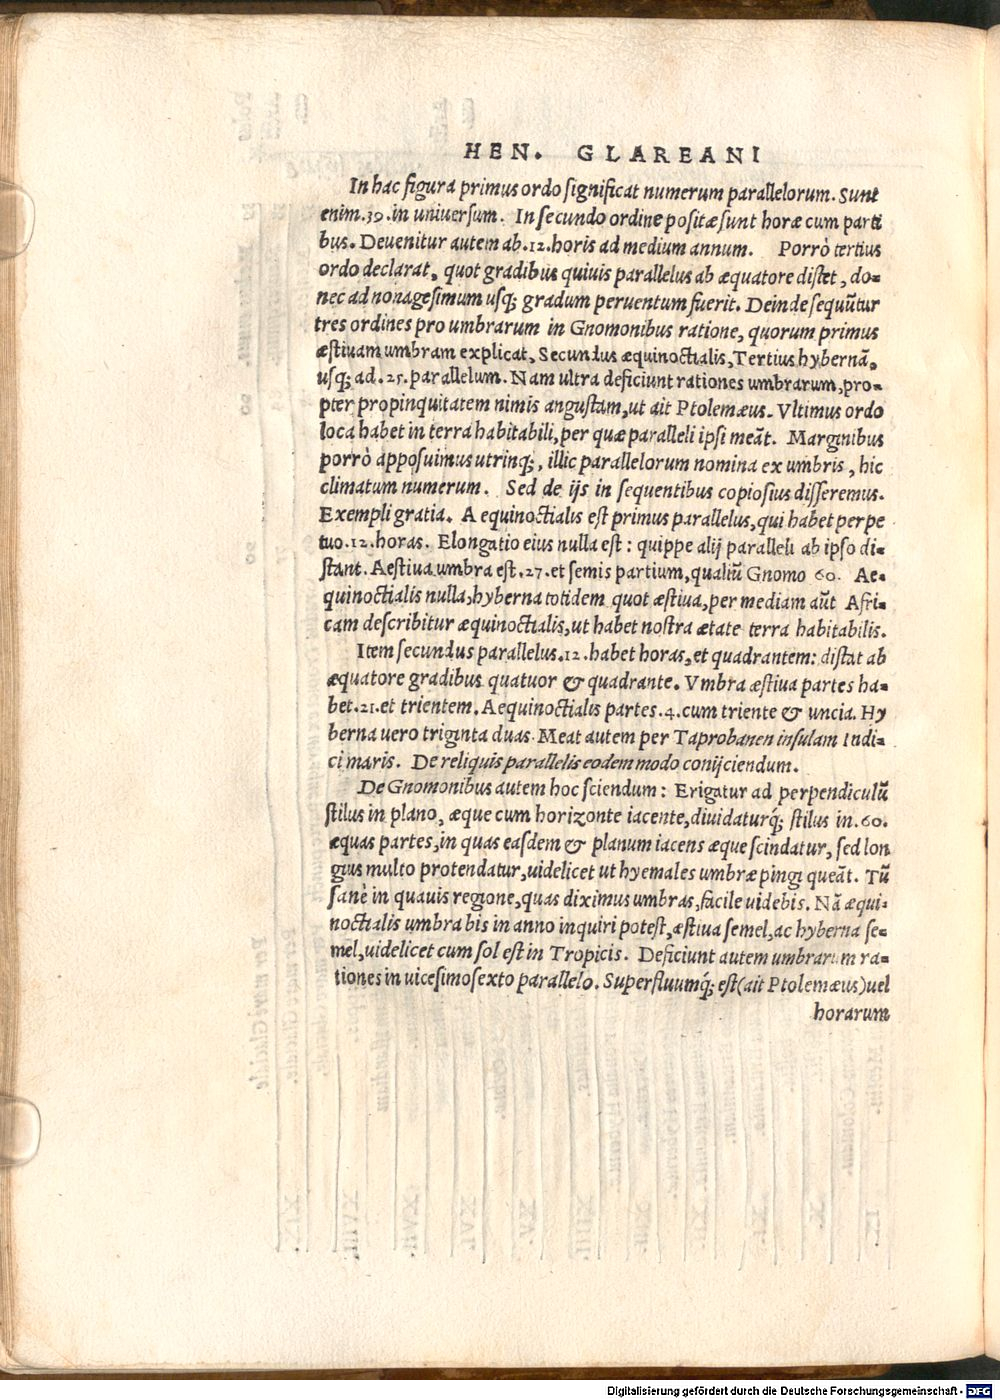 HEN. GLAREANI
In hac figura primus ordo significat numerum parallelorum. Sunt
enim .39. in universum. In secundo ordine positæ sunt horæ cum parti
bus. Deuenitur autem ab .12. horis ad medium annum. Porrò tertius
ordo declarat, quot gradibus quiuis parallelus ab æquatore distet, do-
nec ad nonagesimum usq; gradum peruentum fuerit. Deinde sequũtur
tres ordines pro umbrarum in Gnomonibus ratione, quorum primus
æstiuam umbram explicat, Secundus æquinoctialis, Tertius hybernã,
usq; ad .25. parallelum. Nam ultra deficiunt rationes umbrarum, pro-
pter propinquitatem nimis angustam, ut ait Ptolemæus. Vltimus ordo
loca habet in terra habitabili, per quæ paralleli ipsi meãt. Marginibus
porrò apposuimus utrinq;, illic parallelorum nomina ex umbris, hic
climatum numerum. Sed de ijs in sequentibus copiosius disseremus.
Exempli gratia. Aequinoctialis est primus parallelus, qui habet perpe
tuo .12. horas. Elongatio eius nulla est: quippe alij paralleli ab ipso di-
stant. Aestiua umbra est .27. et semis partium, qualiũ Gnomo 60. Ae-
quinoctialis nulla, hyberna totidem quot æstiua, per mediam aũt Afri-
cam describitur æquinoctialis, ut habet nostra ætate terra habitabilis.
Item secundus parallelus .12. habet horas, et quadrantem: distat ab
æquatore gradibus quatuor & quadrante. Vmbra æstiua partes ha-
bet .21. et trientem. Aequinoctialis partes .4. cum triente & uncia. Hy
berna uero triginta duas. Meat autem per Taprobanen insulam Indi-
ci maris. De reliquis parallelis eodem modo conijciendum.
De Gnomonibus autem hoc sciendum: Erigatur ad perpendiculũ
stilus in plano, æque cum horizonte iacente, diuidaturq́; stilus in .60.
æquas partes, in quas easdem & planum iacens æque scindatur, sed lon
gius multo protendatur, uidelicet ut hyemales umbræ pingi queãt. Tũ
sanè in quauis regione, quas diximus umbras, facile uidebis. Nã æqui-
noctialis umbra bis in anno inquiri potest, æstiua semel, ac hyberna se-
mel, uidelicet cum sol est in Tropicis. Deficiunt autem umbrarum ra-
tiones in uicesimosexto parallelo. Superfluumq́; est (ait Ptolemæus) uel
horarum
Digitalisierung gefördert durch die Deutsche Forschungsgemeinschaft - DFG